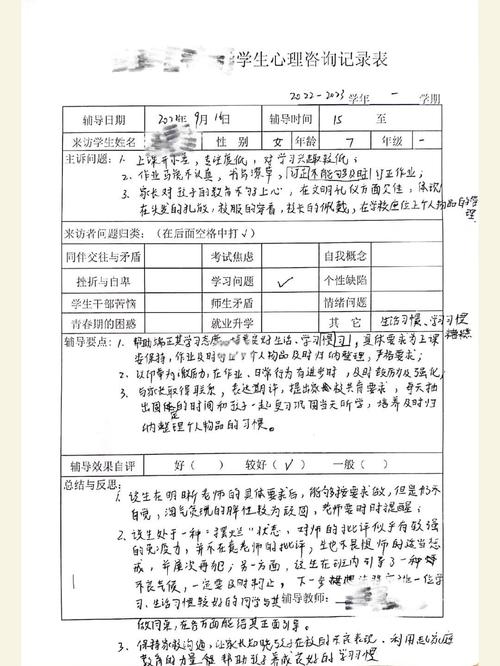 学生心理咨询记录表
2022-2023 学年 一 学期
辅导日期 9月16日 辅导时间 15 至
来访学生姓名 性别 女 年龄 7 年级 一
主诉问题：1. 上课开小差，专注度低，对学习兴趣较低；
2. 作业习惯不认真，书写潦草，订正不能够及时订正作业；
3. 家长对孩子的教育不够上心，在文明礼仪方面欠佳，体现
在头发的扎放，校服的穿着，校卡的佩戴，在学校座位上个人物品的管
理
来访者问题归类：（在后面空格中打√）
同伴交往与矛盾 考试焦虑 自我概念
挫折与自卑 学习问题 √ 个性缺陷
学生干部苦恼 师生矛盾 情绪问题
青春期的困惑 就业升学 其它 生活习惯、学习习惯
糟糕
辅导要点：1. 帮助端正其学习态度，对生活、学习惯习，具体要求为上课
要保持，作业及时 个人物品及时归纳整理，严格要求；
2. 以印章为激励，在作业、日常行为有进步时，及时鼓励及强化；
3. 与家长取得联系，表达期许，提出家校共育要求，每天抽
出固定的时间和孩子一起复习巩固当天所学，培养及时归
纳整理个人物品的习惯。
辅导效果自评 好（ ） 较好（√） 一般（ ）
总结与反思：
1. 该生在明晰老师的具体要求后，能够按要求做，但是仍不
自觉，淘气贪玩的习性较为顽固，老师要时时提醒；
2. 该生处于一种"摆烂"状态，对师的批评似乎有较强
的免疫力，并不在意老师的批评，也不是恨师的该当想
戒，并屡次再犯；另一方面，该生在班内引导了一种
不良气候，一定要及时制止，下一步 一位学
习、生活习惯较好的同学与其 辅导教师：
做同桌，在各方面能给其正面引导。
3. 保持家校沟通，让家长知晓孩子在校的不良表现，利用起家庭
教育的力量能帮助孩子养成良好的学习习惯